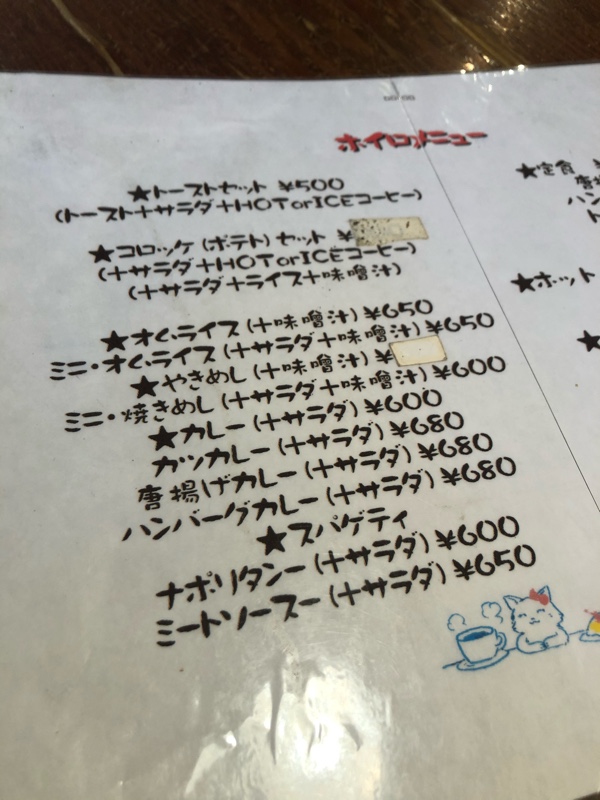 ホイロメニュー
★トーストセット ¥500
(トースト+サラダ+HOTorICEコーヒー)
★コロッケ(ポテト)セット ¥
(+サラダ+HOTorICEコーヒー)
(+サラダ+ライス+味噌汁)
★オムライス(+味噌汁)¥650
ミニ・オムライス(+サラダ+味噌汁)¥650
★やきめし(+味噌汁)¥
ミニ・焼きめし(+サラダ+味噌汁)¥600
★カレー(+サラダ)¥600
カツカレー(+サラダ)¥680
唐揚げカレー(+サラダ)¥680
ハンバーグカレー(+サラダ)¥680
★スパゲティ
ナポリタンー(+サラダ)¥600
ミートソースー(+サラダ)¥650
★定食
唐揚
ハン
★ホット
★